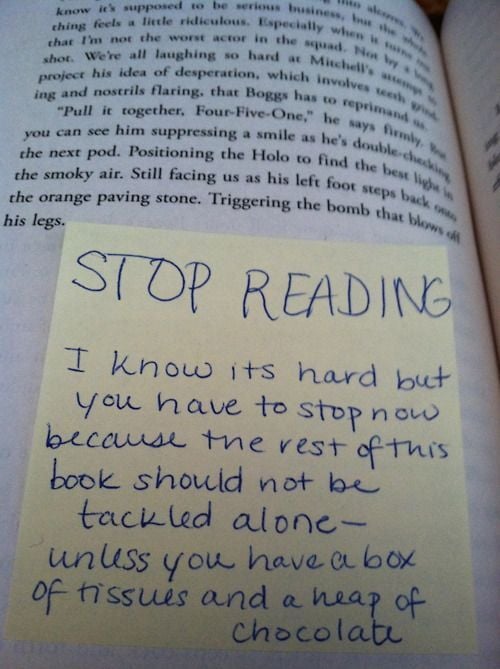 know it's supposed to be serious business, but the whole
thing feels a little ridiculous. Especially when it turns out
that I'm not the worst actor in the squad. Not by a long
shot. We're all laughing so hard at Mitchell's attempt to
project his idea of desperation, which involves teeth grind-
ing and nostrils flaring, that Boggs has to reprimand us.
"Pull it together, Four-Five-One," he says firmly. But
you can see him suppressing a smile as he's double-checking
the next pod. Positioning the Holo to find the best light in
the smoky air. Still facing us as his left foot steps back onto
the orange paving stone. Triggering the bomb that blows off
his legs.
STOP READING
I know its hard but
you have to stop now
because the rest of this
book should not be
tackled alone—
unless you have a box
of tissues and a heap of
chocolate